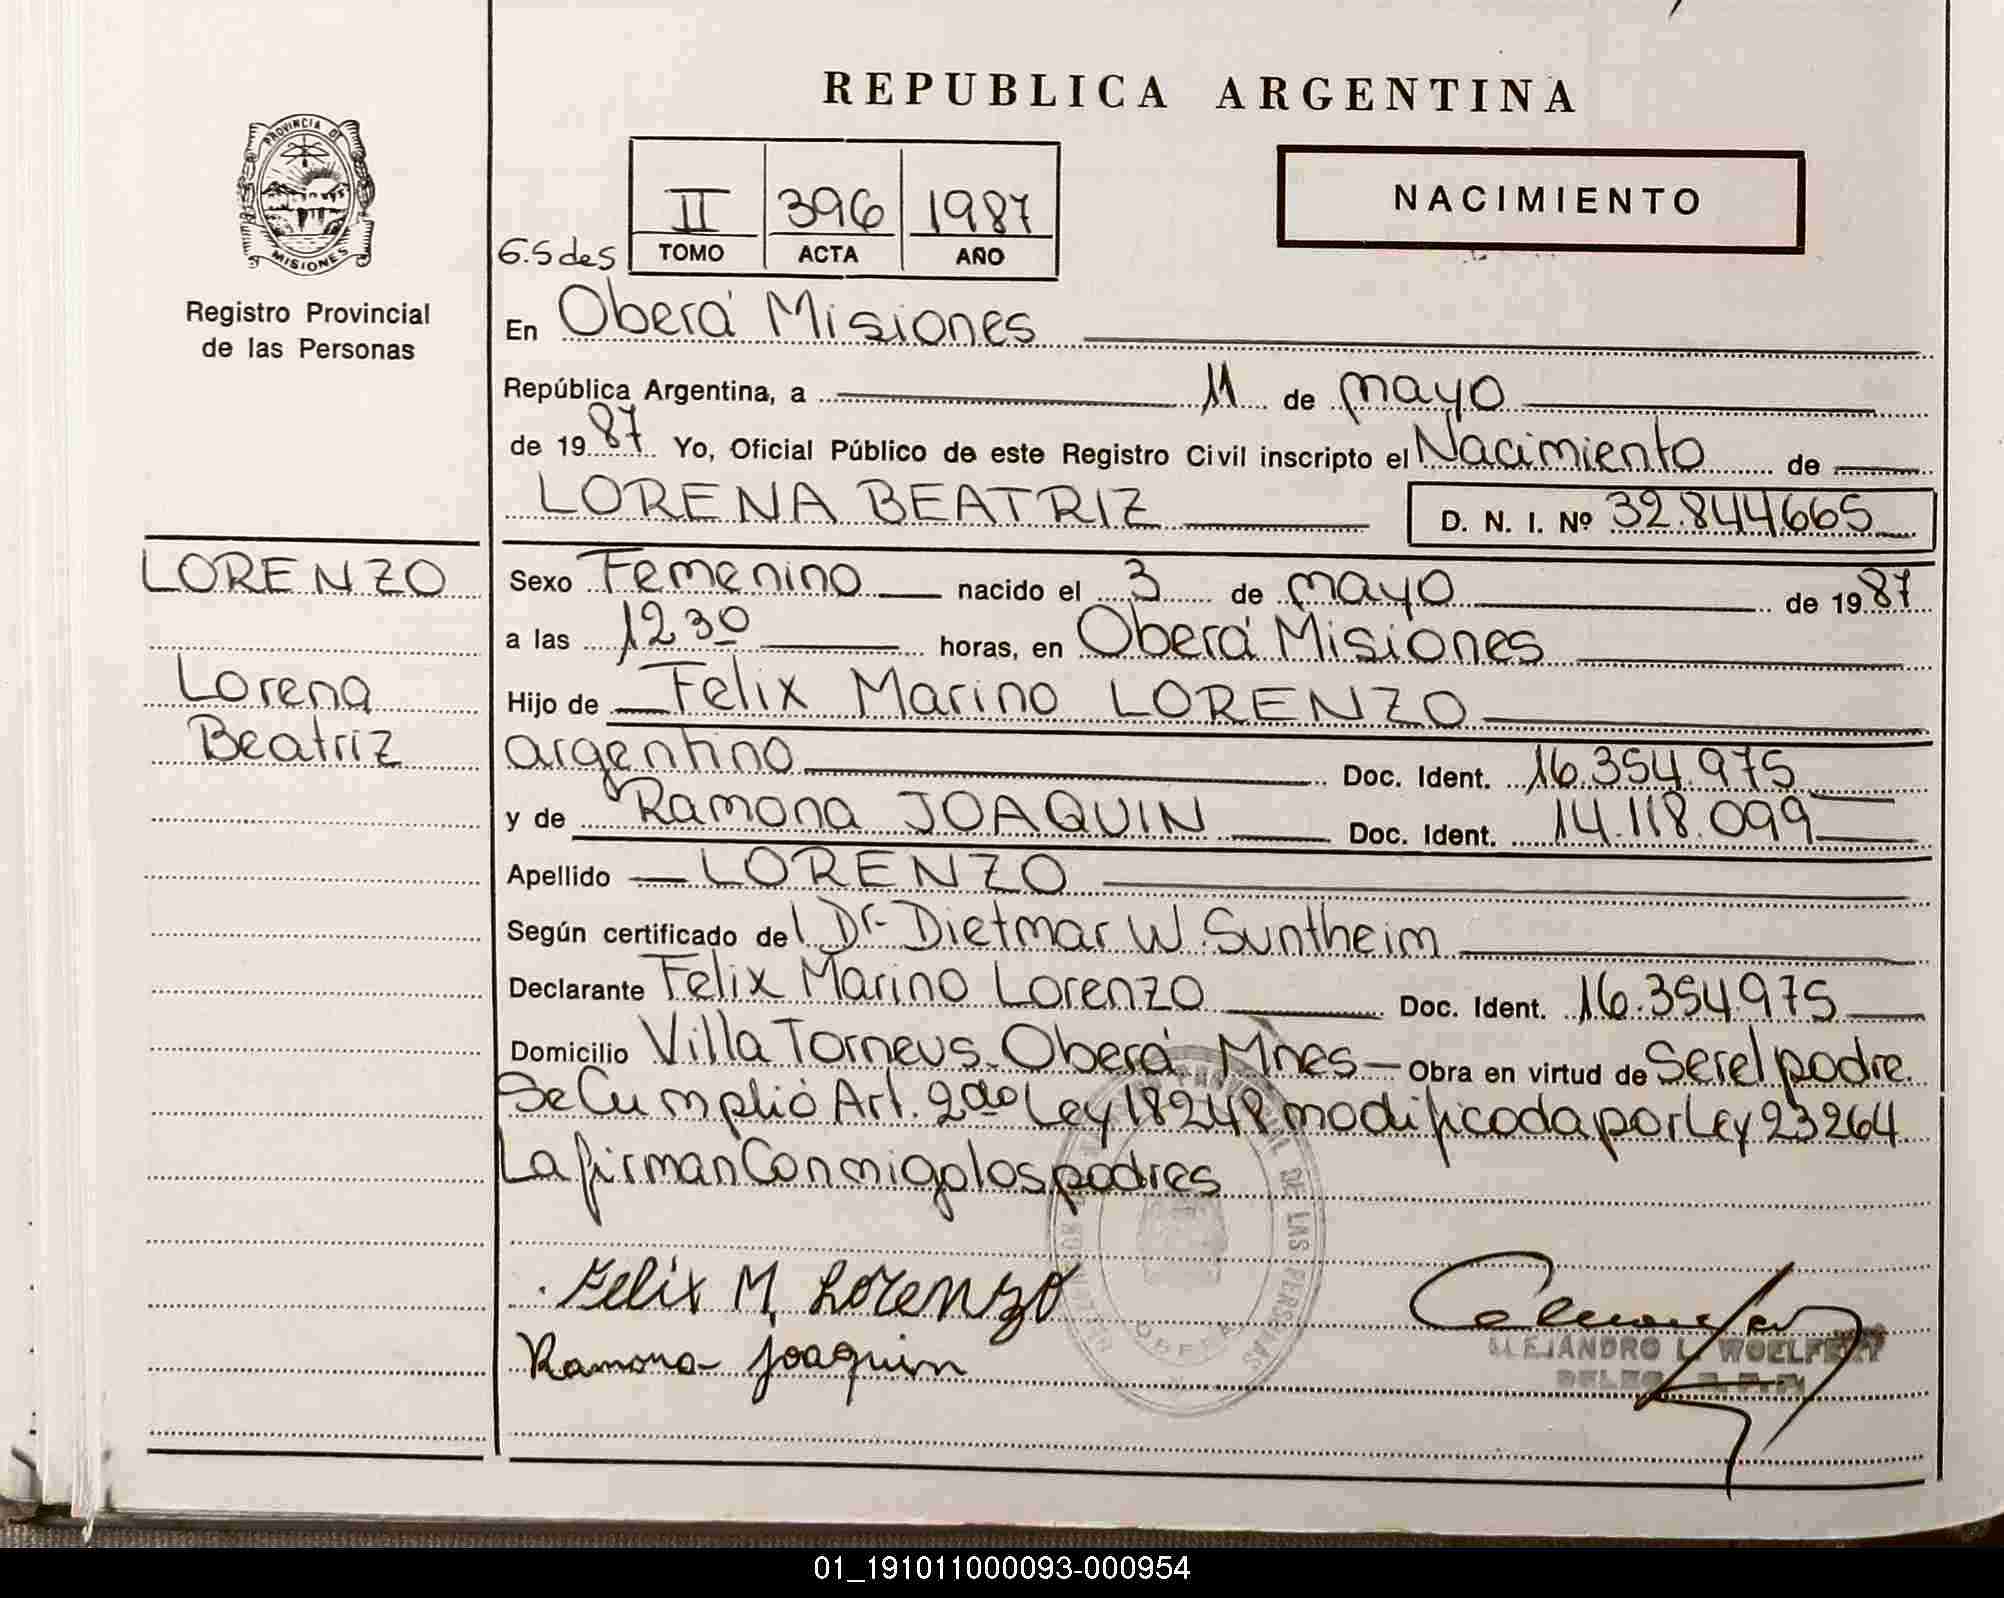 REPUBLICA ARGENTINA
PROVINCIA DE
MISIONES
Registro Provincial
de las Personas
II 396 1987
6.5 des TOMO ACTA AÑO
NACIMIENTO
En Oberá Misiones
República Argentina, a 11 de mayo
de 1987 Yo, Oficial Público de este Registro Civil inscripto el Nacimiento de
LORENA BEATRIZ D. N. I. Nº 32.844.665
LORENZO
Lorena
Beatriz
Sexo Femenino nacido el 3 de mayo de 1987
a las 12 30 horas, en Oberá Misiones
Hijo de Felix Marino LORENZO
argentino Doc. Ident. 16.354.975
y de Ramona JOAQUIN Doc. Ident. 14.118.099
Apellido LORENZO
Según certificado del Dr. Dietmar W. Suntheim
Declarante Felix Marino Lorenzo Doc. Ident. 16.354.975
Domicilio Villa Torneus. Oberá Mnes - Obra en virtud de Ser el padre.
Se Cumplió Art. 2do Ley 18248 modificada por Ley 23264
La firman Conmigo los padres
Felix M. Lorenzo
Ramona Joaquin
DE LAS PERSONAS
OBERA
ALEJANDRO L. WOELFERT
01_191011000093-000954